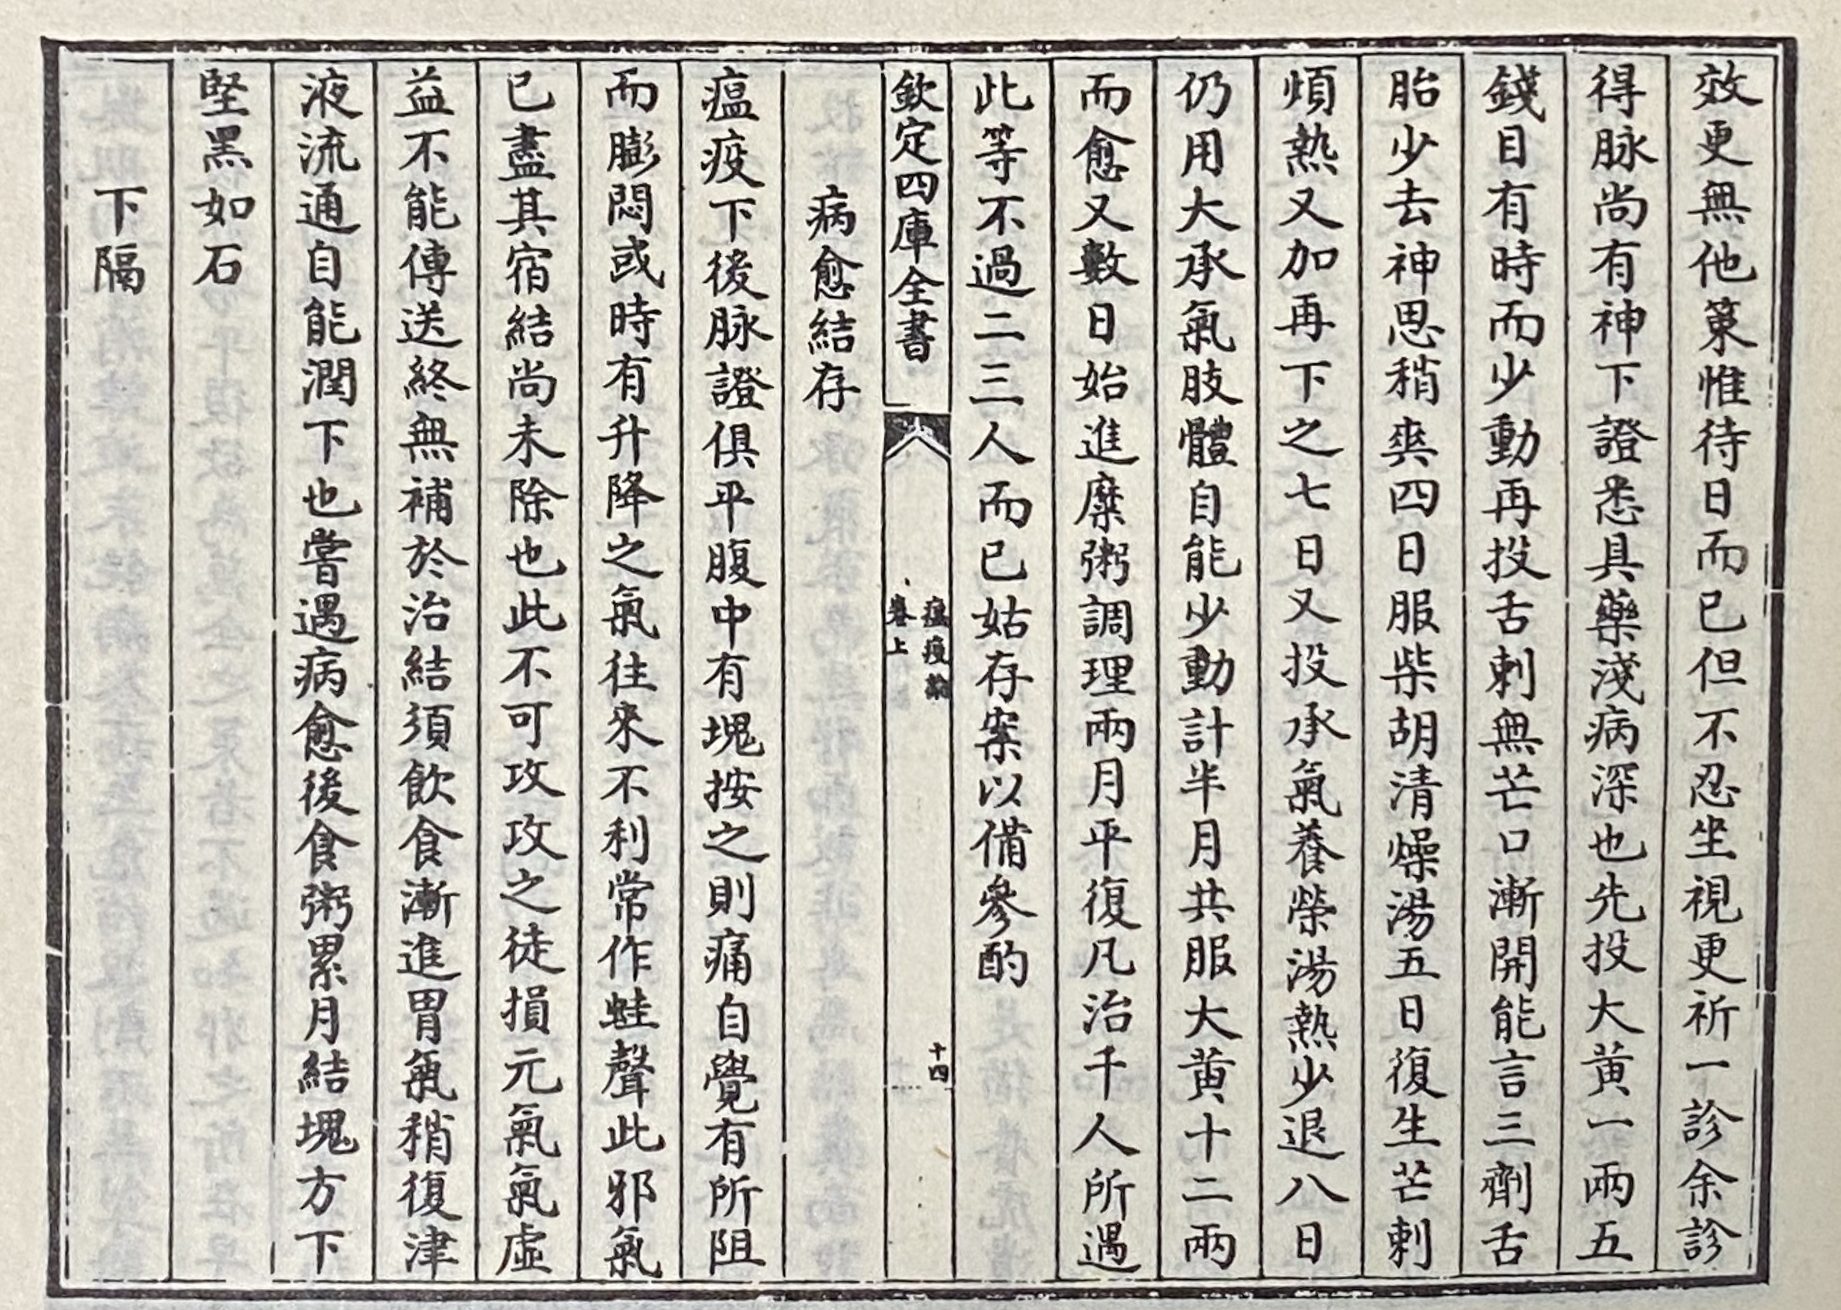 效更無他策惟待日而已但不忍坐視更祈一診余診
得脉尚有神下證悉具藥淺病深也先投大黄一兩五
錢目有時而少動再投舌刺無芒口漸開能言三劑舌
胎少去神思稍爽四日服柴胡清燥湯五日復生芒刺
煩熱又加再下之七日又投承氣養榮湯熱少退八日
仍用大承氣肢體自能少動計半月共服大黄十二兩
而愈又數日始進糜粥調理兩月平復凡治千人所遇
此等不過二三人而已姑存案以備參酌
欽定四庫全書
瘟疫論
卷上
十四
病愈結存
瘟疫下後脉證俱平腹中有塊按之則痛自覺有所阻
而膨悶或時有升降之氣往來不利常作蛙聲此邪氣
已盡其宿結尚未除也此不可攻攻之徒損元氣氣虛
益不能傳送終無補於治結須飲食漸進胃氣稍復津
液流通自能潤下也嘗遇病愈後食粥累月結塊方下
堅黑如石
下隔